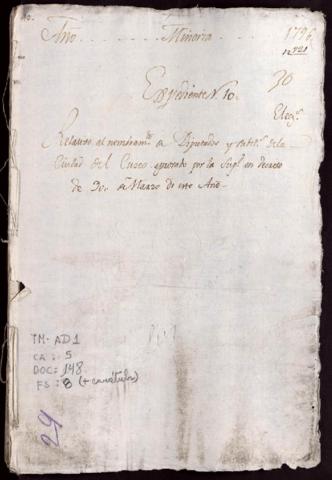 Año . . . . . Mineria . . . . 1796
n 721
Expediente N. 10. 30
Eleg.s
Relativo al nombram.to de Diputados y substi.s de la
Ciudad del Cusco aprovado por la Sup.d en decreto
de 30. de Marzo de este Año.
TM-AD1
CA : 5
DOC: 148
FS : 8 (+ carátula)
29